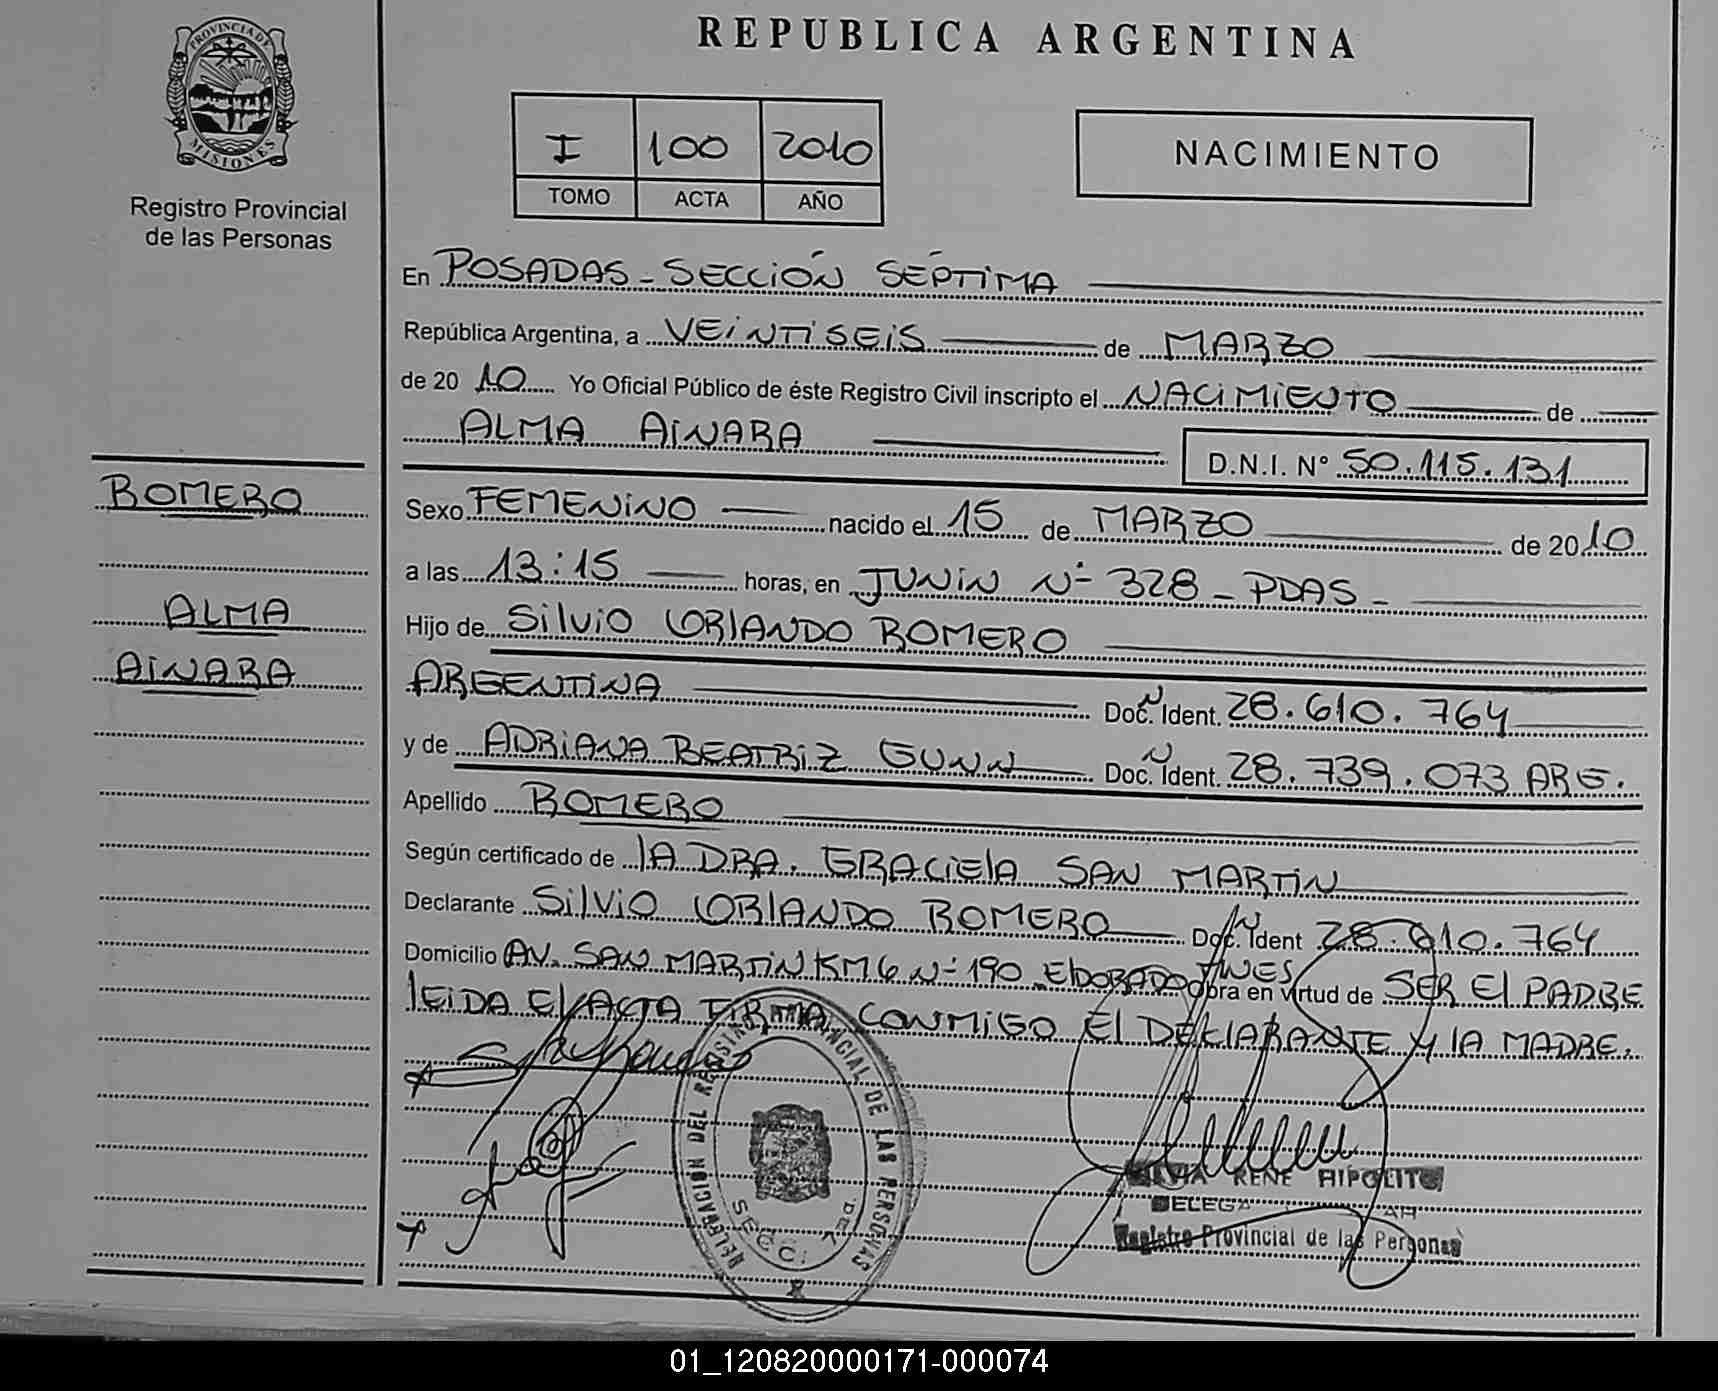 REPUBLICA ARGENTINA
PROVINCIA DE MISIONES
Registro Provincial
de las Personas
I 100 2010
TOMO ACTA AÑO
NACIMIENTO
En POSADAS - SECCIÓN SÉPTIMA
República Argentina, a VEINTISEIS de MARZO
de 20 10 Yo Oficial Público de éste Registro Civil inscripto el NACIMIENTO de
ALMA AINARA D.N.I. N° 50.115.131
ROMERO
ALMA
AINARA
Sexo FEMENINO nacido el 15 de MARZO de 20 10
a las 13:15 horas, en JUNIN N° 328 - PDAS -
Hijo de Silvio ORLANDO ROMERO
ARGENTINA Doc. Ident. 28.610.764
y de ADRIANA BEATRIZ GUNN Doc. Ident. 28.739.073 ARG.
Apellido ROMERO
Según certificado de lA DRA. GRACIElA SAN MARTIN
Declarante Silvio ORlANDO ROMERO Doc. Ident 28.610.764
Domicilio AV. SAN MARTIN KM 6 N° 190 ElDORADO MNES Obra en virtud de SER El PADRE
lEIDA El ACTA FIRMA CONMIGO El DEClARANTE Y lA MADRE.
DELEGACION DEL REGISTRO PROVINCIAL DE LAS PERSONAS
RENE HIPOLITO
Registro Provincial de las Personas
01_120820000171-000074